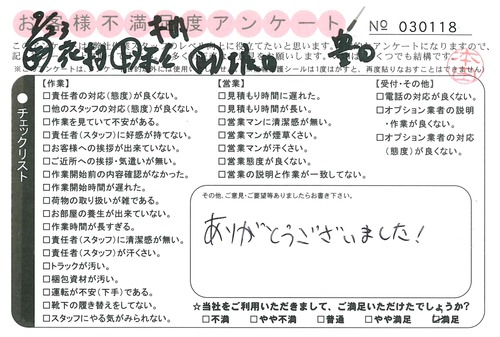 お客様不満足度アンケート
No 030118
【作業】
□責任者の対応(態度)が良くない。
□他のスタッフの対応(態度)が良くない。
□作業を見ていて不安がある。
□責任者(スタッフ)に好感が持てない。
□お客様への挨拶が出来ていない。
□ご近所への挨拶・気遣いが無い。
□作業開始前の内容確認がなかった。
□作業開始時間が遅れた。
□荷物の取り扱いが雑である。
□お部屋の養生が出来ていない。
□作業時間が長すぎる。
□責任者(スタッフ)に清潔感が無い。
□責任者(スタッフ)が汗くさい。
□トラックが汚い。
□梱包資材が汚い。
□運転が不安(下手)である。
□靴下の履き替えをしてない。
□スタッフにやる気がみられない。
【営業】
□見積もり時間に遅れた。
□見積もり時間が長い。
□営業マンに清潔感が無い。
□営業マンが煙草くさい。
□営業マンが汗くさい。
□営業態度が良くない。
□営業の説明と作業が一致してない。
【受付・その他】
□電話の対応が良くない。
□オプション業者の説明
・作業が良くない。
□オプション業者の対応
(態度)が良くない。
チェックリスト
その他、ご意見・ご要望等ありましたらお書き下さい。
ありがとうございました!
☆当社をご利用いただきまして、ご満足いただけたでしょうか?
□不満 □やや不満 □普通 □やや満足 □満足